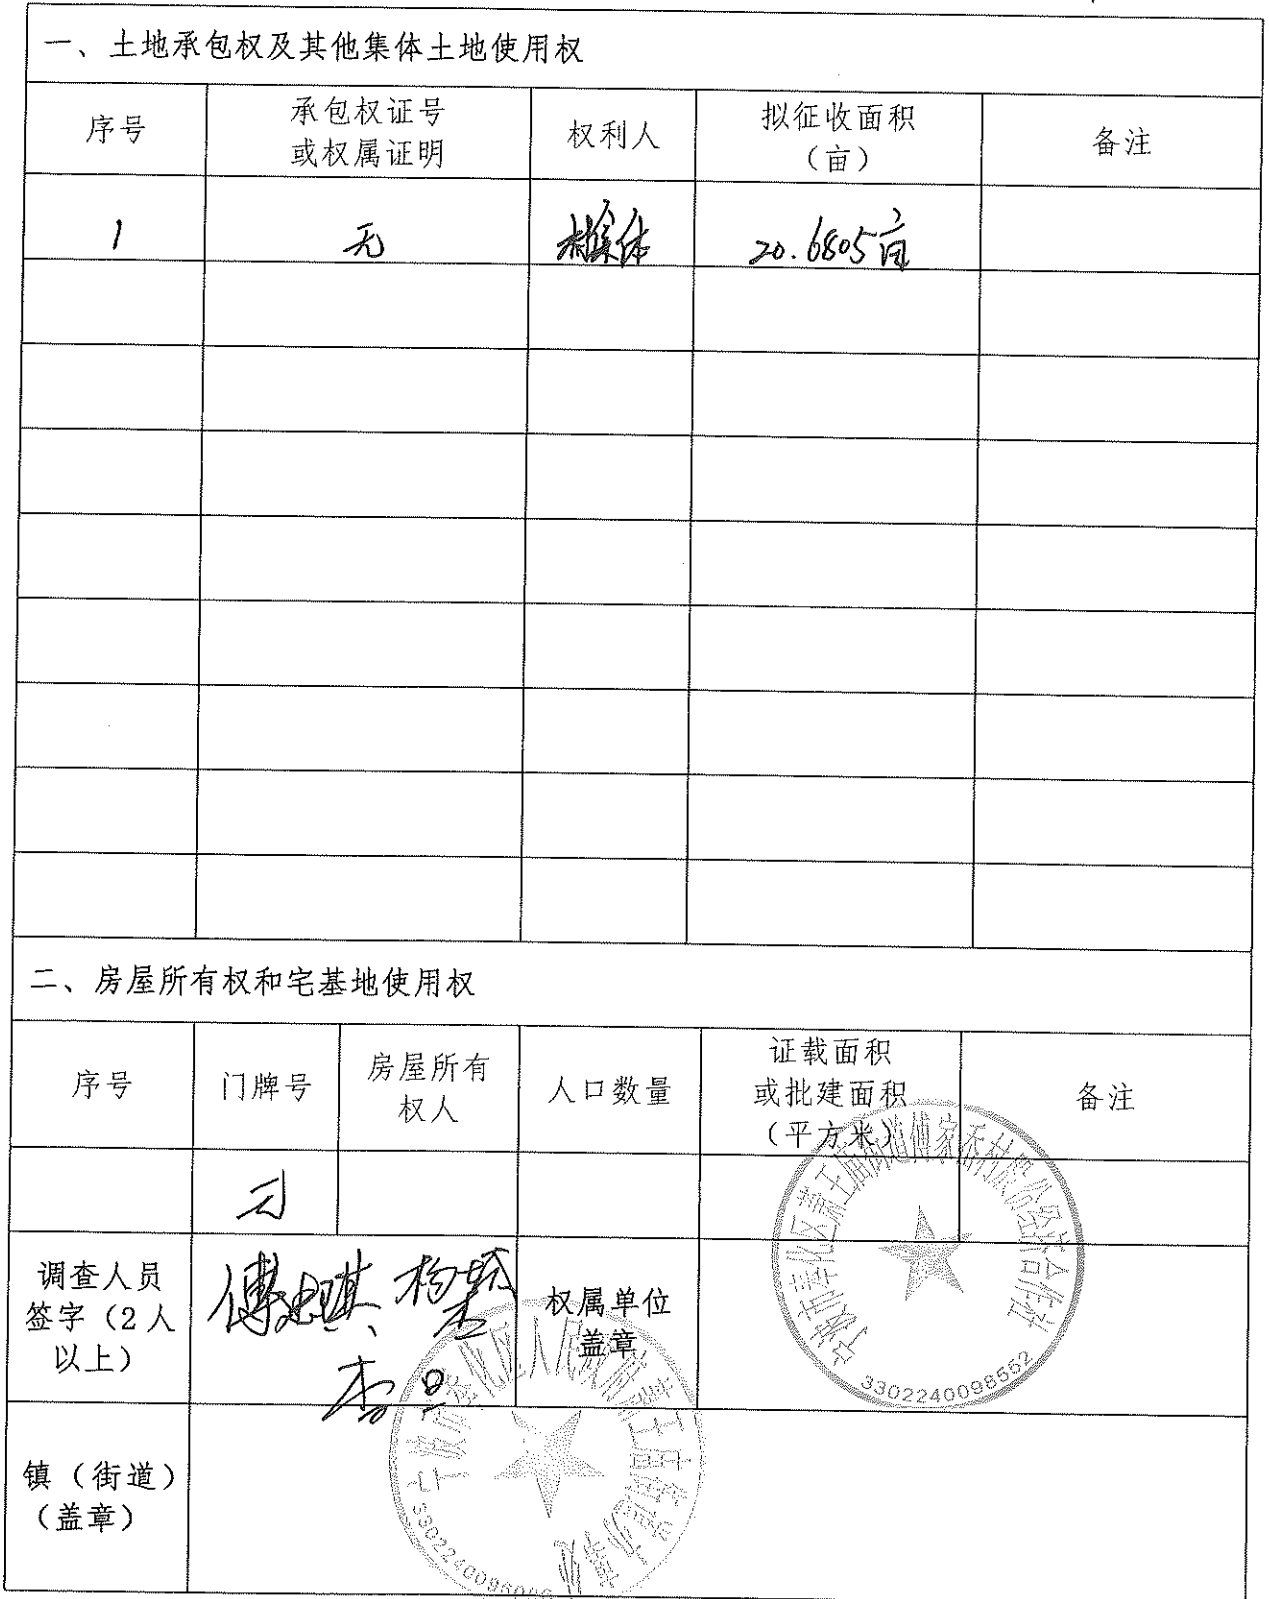 一、土地承包权及其他集体土地使用权
序号
承包权证号
或权属证明
权利人
拟征收面积
（亩）
备注
1
无
村集体
20.6805亩
二、房屋所有权和宅基地使用权
序号
门牌号
房屋所有
权人
人口数量
证载面积
或批建面积
（平方米）
备注
调查人员
签字（2人
以上）
权属单位
盖章
宁波市奉化区萧王庙街道傅家岙村股份经济合作社
3302240098552
镇（街道）
（盖章）
宁波市奉化区人民政府萧王庙街道办事处